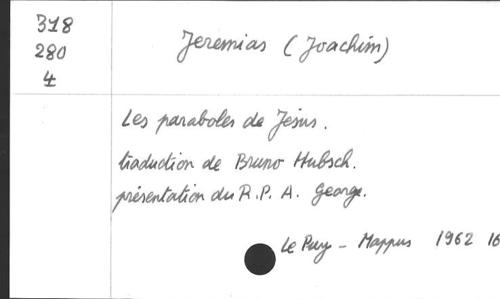 318
280
4
Jeremias (Joachim)
Les paraboles de Jésus.
traduction de Bruno Hübsch.
présentation du R.P. A. George.
Le Puy - Mappus 1962 16